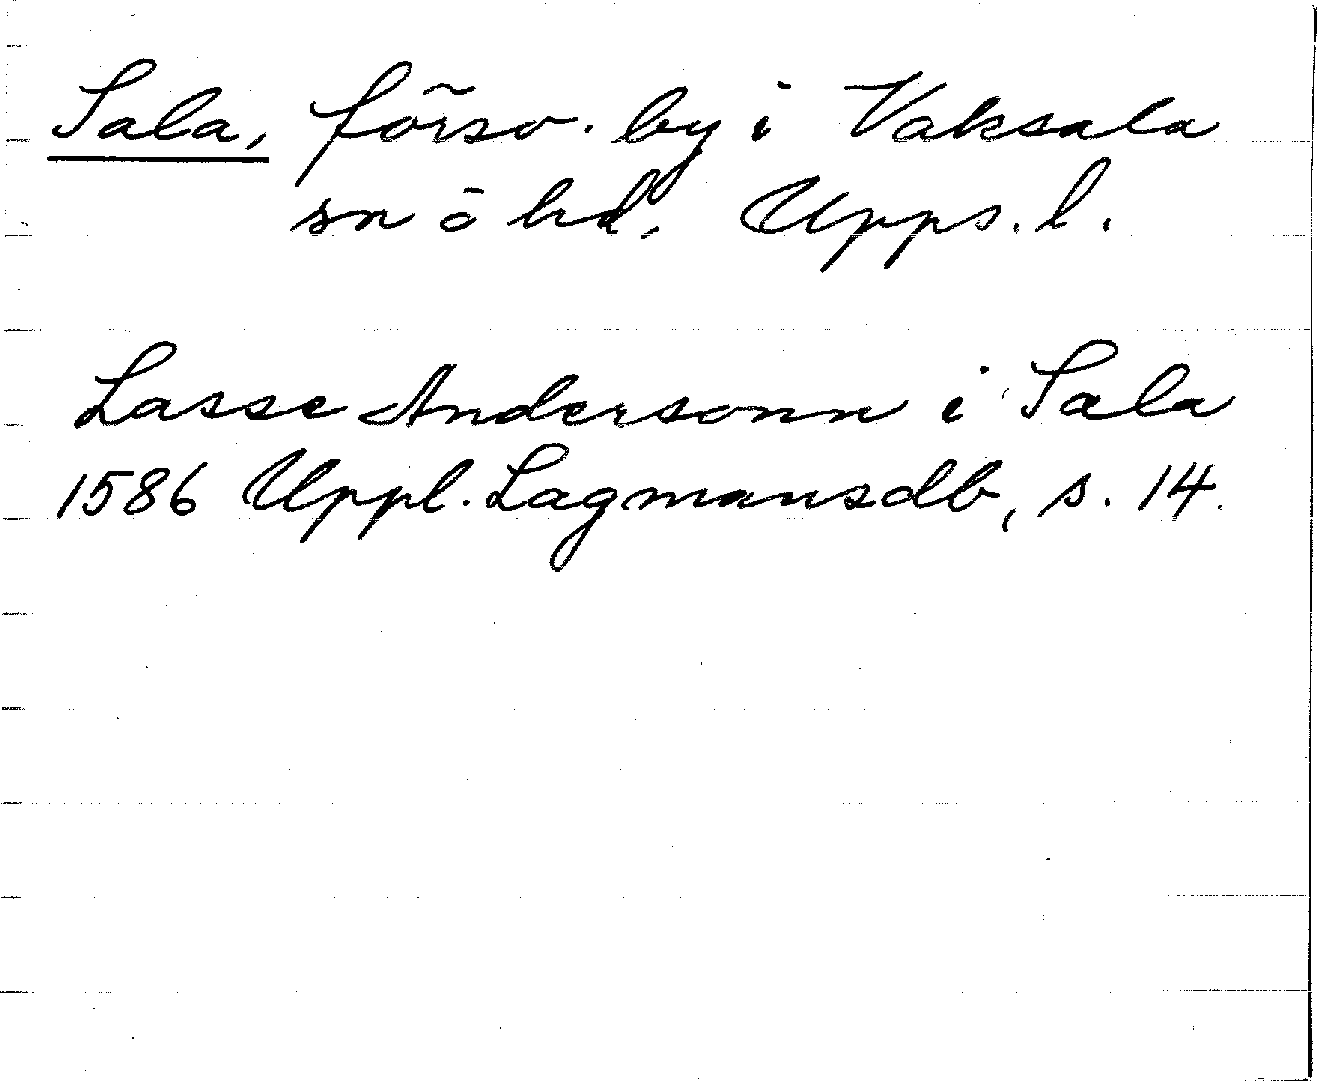 Sala, försv. by i Vaksala
sn o hd, Upps. l.
Lasse Andersonn i Sala
1586 Uppl. Lagmansdb, s. 14.